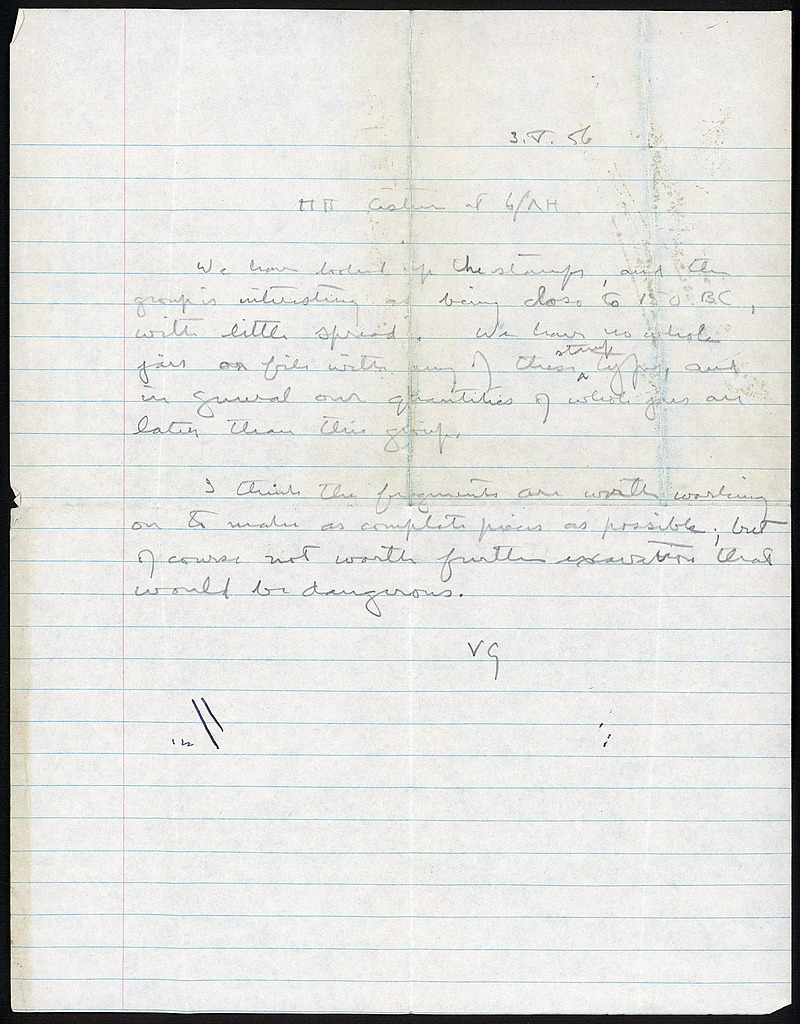 3.V.56
ΠΠ Cistern at 6/ΛΗ
We have looked up the stamps, and the
group is interesting as being close to 150 BC,
with little spread. We have no whole
jars on file with any of these stamp types, and
in general our quantities of whole jars are
later than this group.
I think the fragments are worth working
on to make as complete pieces as possible; but
of course not worth further excavation that
would be dangerous.
VG